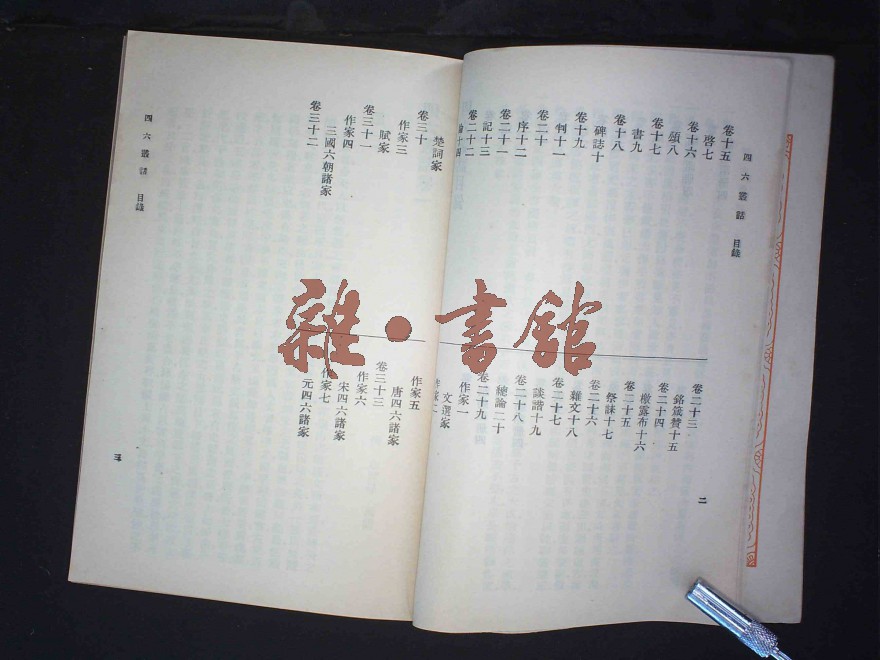 四六叢話 目錄
卷十五
啓七
卷十六
頌八
卷十七
書九
卷十八
碑誌十
卷十九
判十一
卷二十
序十二
卷二十一
記十三
卷二十二
論十四
卷二十三
銘箴贊十五
卷二十四
檄露布十六
卷二十五
祭誄十七
卷二十六
雜文十八
卷二十七
談諧十九
卷二十八
總論二十
卷二十九
作家一
文選家
作家二
二
楚詞家
卷三十
作家三
賦家
卷三十一
作家四
三國六朝諸家
卷三十二
作家五
唐四六諸家
卷三十三
作家六
宋四六諸家
作家七
元四六諸家
四六叢話 目錄
三
雜·書館